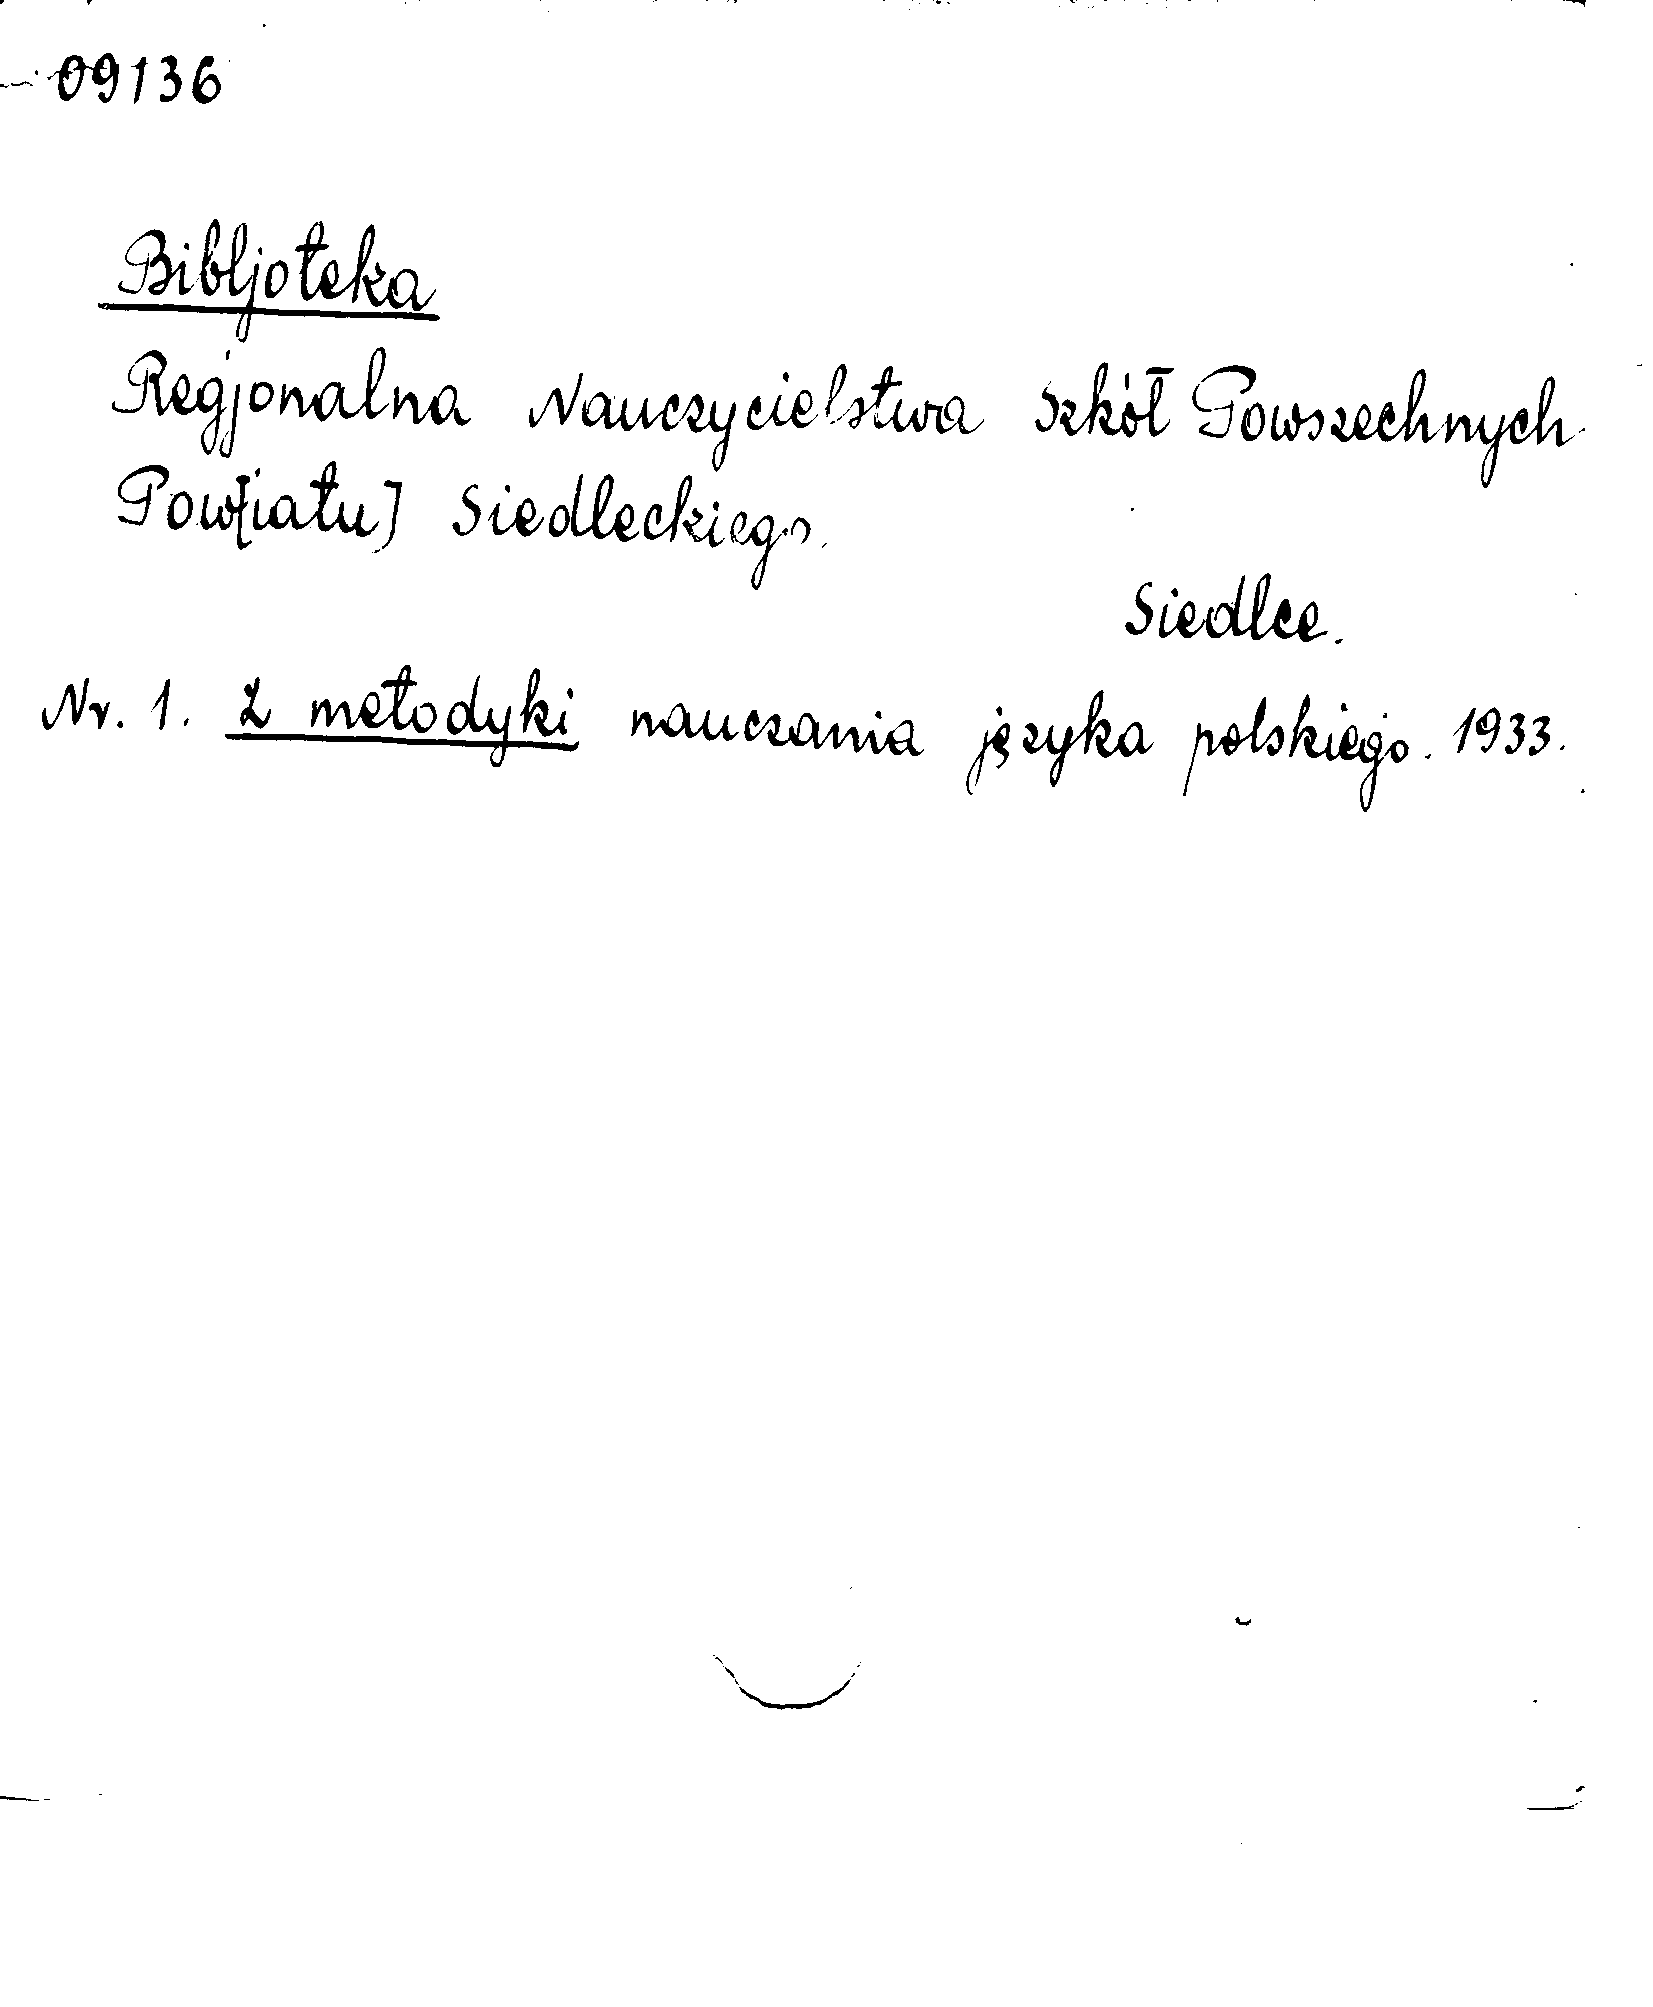 09136
Bibljoteka
Regjonalna Nauczycielstwa Szkół Powszechnych
Pow[iatu] Siedleckiego.
Siedlce.
Nr. 1. Z metodyki nauczania języka polskiego. 1933.